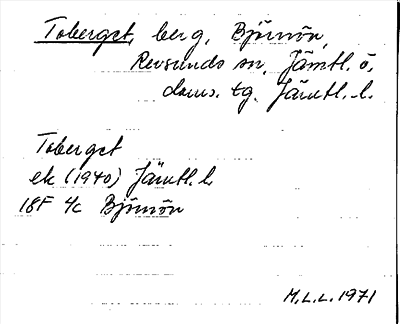 Toberget, berg, Björnön,
Revsunds sn, Jämtl. ö.
doms. tg. Jämtl. l.
Toberget
ek (1940) Jämtl. l.
18F 4c Björnön
M.L.L. 1971